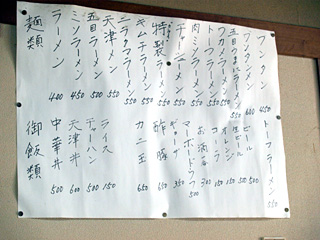 麺類
ラーメン 400
ミソラーメン 450
五目ラーメン 500
天津メン 550
ニラタマラーメン 550
キムチラーメン 550
特製ラーメン 550
チャーシューメン 550
肉ミソラーメン 550
トーフラーメン 550
ワカメラーメン 550
五目うまにラーメン 550
ワンタンメン 600
ワンタン 450
トーフラーメン 550
御飯類
中華丼 500
天津丼 600
チャーハン 500
ライス 150
カニ玉 650
酢豚 650
ギョーザ 350
マーボードウフ 500
お酒 300
コーラ 150
オレンジ 150
生ビール 500
ビール 500